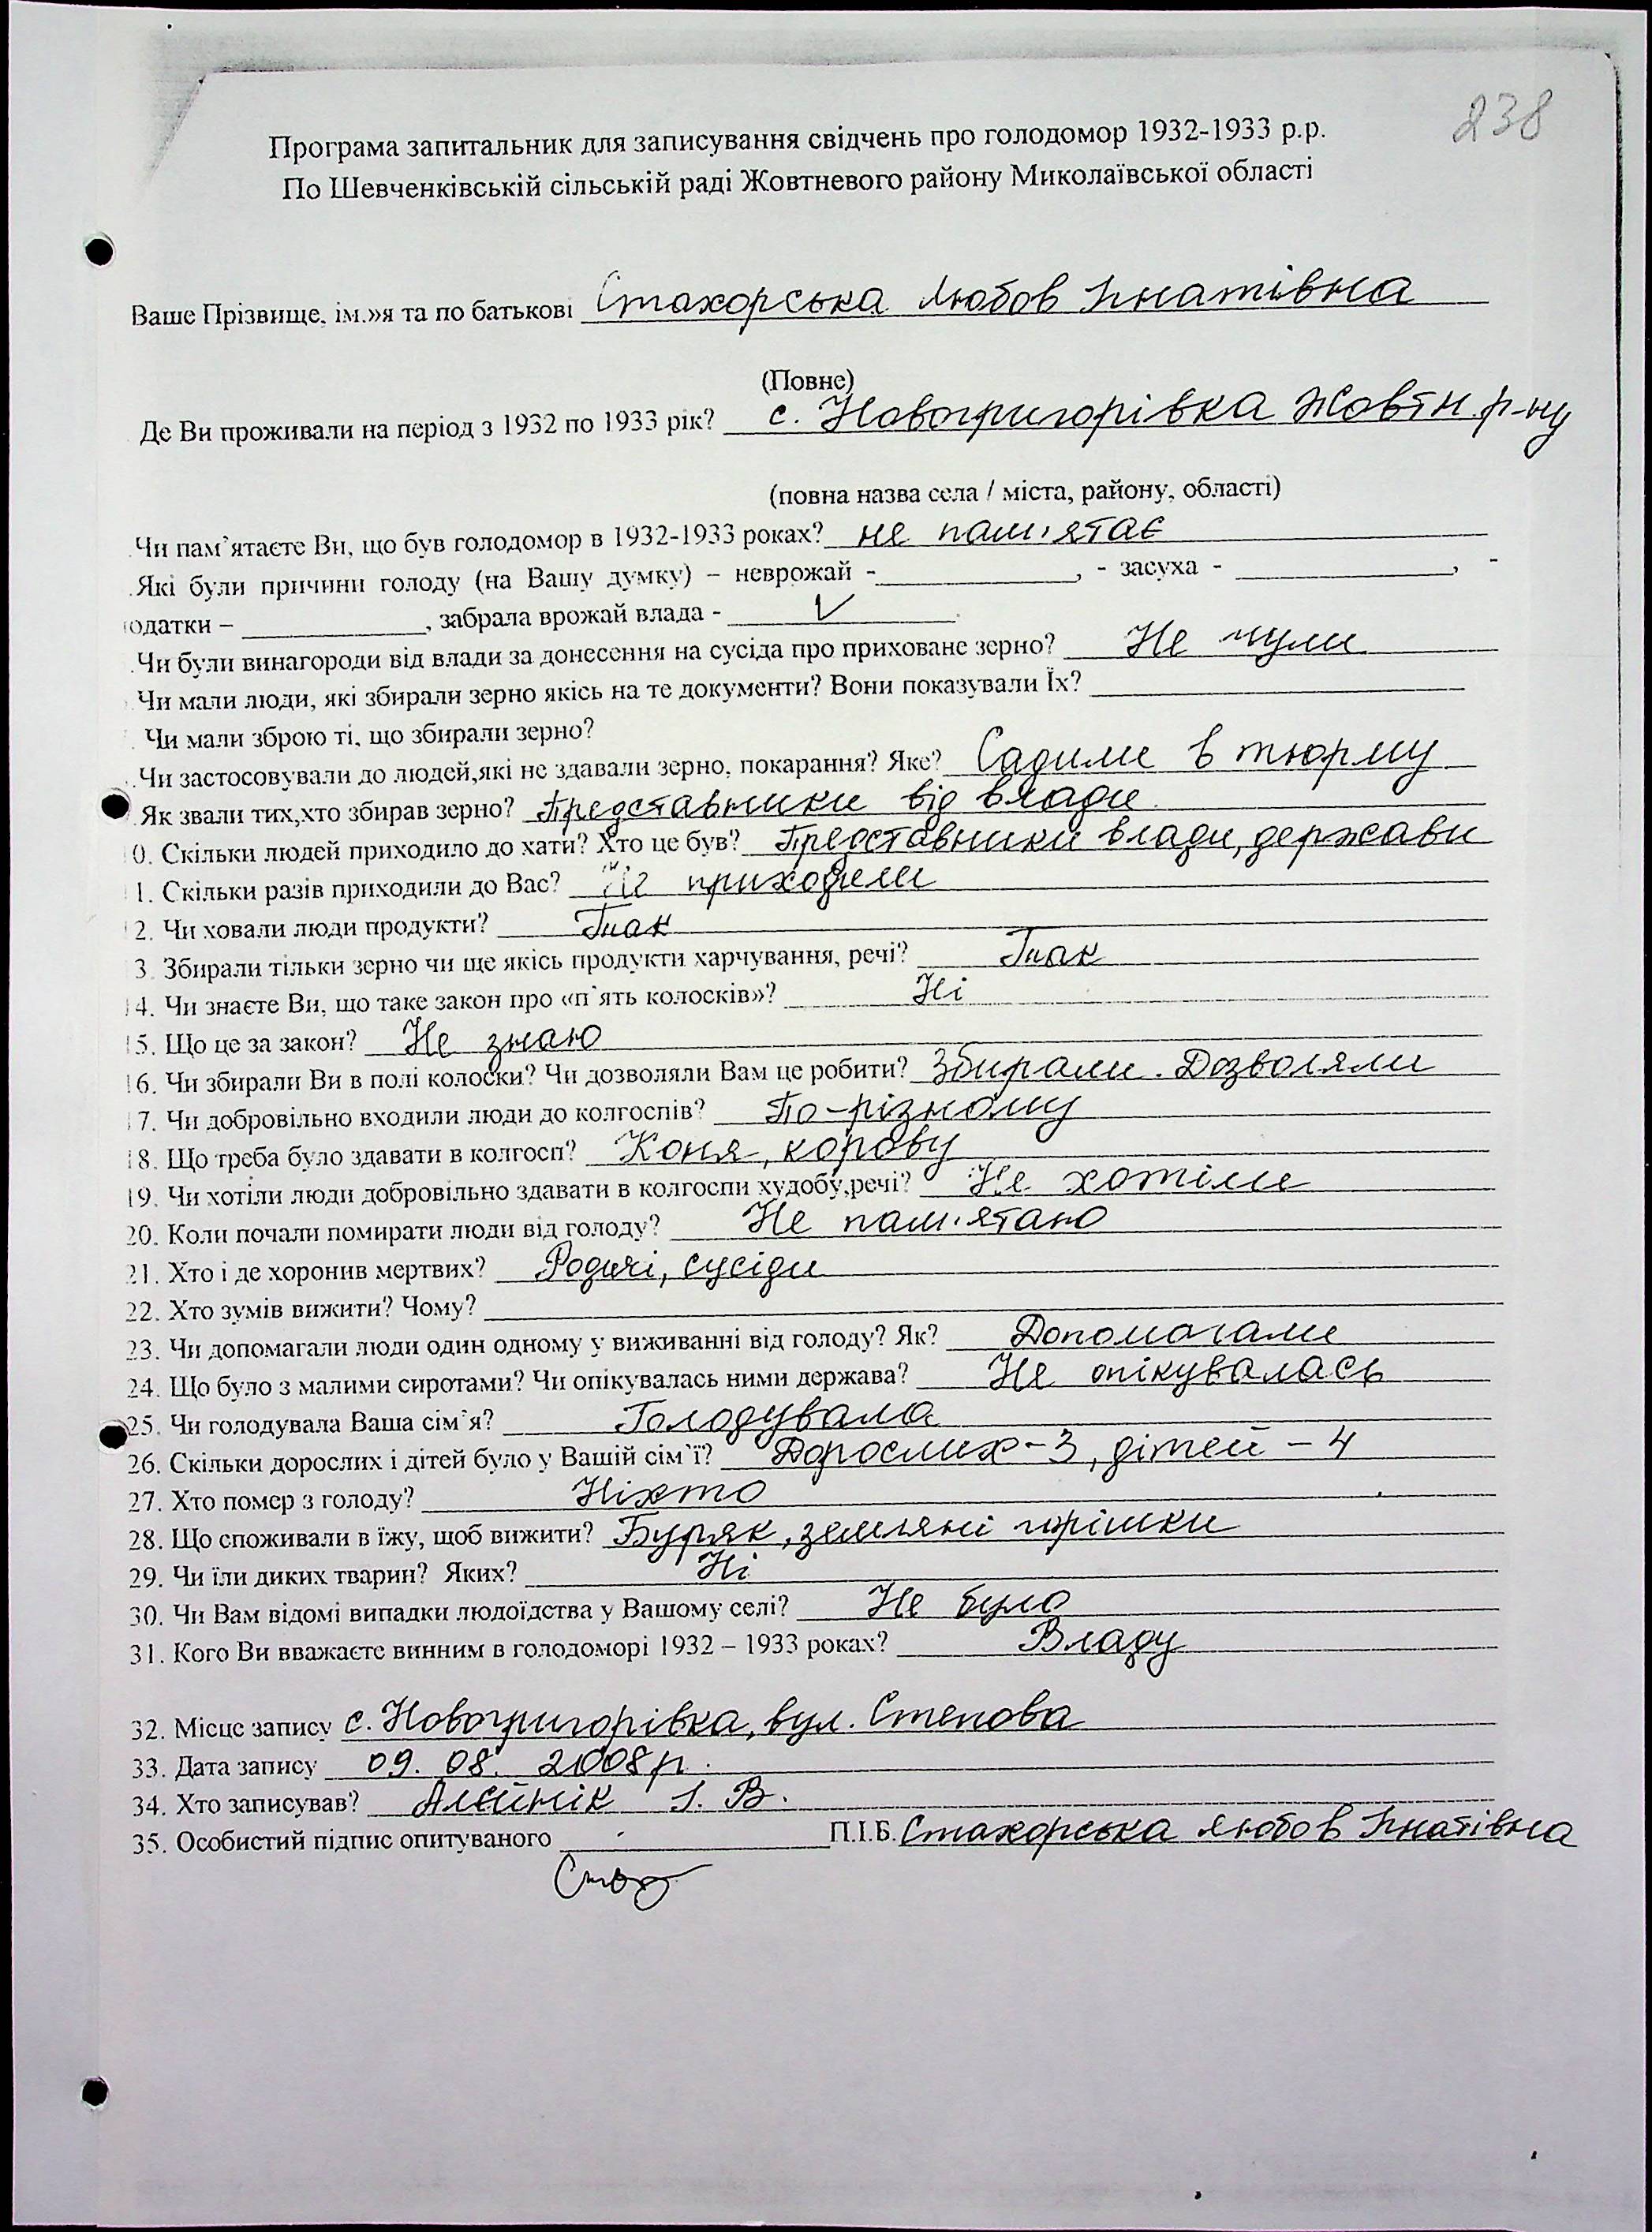 238
Програма запитальник для записування свідчень про голодомор 1932-1933 р.р.
По Шевченківській сільській раді Жовтневого району Миколаївської області
Ваше Прізвище, ім.»я та по батькові Стахорська Любов Ігнатівна
(Повне)
Де Ви проживали на період з 1932 по 1933 рік? с. Новогригорівка Жовтн. р-ну
(повна назва села / міста, району, області)
Чи пам'ятаєте Ви, що був голодомор в 1932-1933 роках? не пам'ятає
Які були причини голоду (на Вашу думку) – неврожай - , - засуха - , -
одатки – , забрала врожай влада - V .
Чи були винагороди від влади за донесення на сусіда про приховане зерно? Не чули
Чи мали люди, які збирали зерно якісь на те документи? Вони показували Їх?
Чи мали зброю ті, що збирали зерно?
Чи застосовували до людей,які не здавали зерно, покарання? Яке? Садили в тюрму
Як звали тих,хто збирав зерно? Представники від влади
0. Скільки людей приходило до хати? Хто це був? Представники влади, держави
1. Скільки разів приходили до Вас? Не приходили
2. Чи ховали люди продукти? Так
3. Збирали тільки зерно чи ще якісь продукти харчування, речі? Так
14. Чи знаєте Ви, що таке закон про «п`ять колосків»? Ні
15. Що це за закон? Не знаю
16. Чи збирали Ви в полі колоски? Чи дозволяли Вам це робити? Збирали. Дозволяли
17. Чи добровільно входили люди до колгоспів? По-різному
18. Що треба було здавати в колгосп? Коня, корову
19. Чи хотіли люди добровільно здавати в колгоспи худобу,речі? Не хотіли
20. Коли почали помирати люди від голоду? Не пам'ятаю
21. Хто і де хоронив мертвих? Родичі, сусіди
22. Хто зумів вижити? Чому?
23. Чи допомагали люди один одному у виживанні від голоду? Як? Допомагали
24. Що було з малими сиротами? Чи опікувалась ними держава? Не опікувалась
25. Чи голодувала Ваша сім`я? Голодувала
26. Скільки дорослих і дітей було у Вашій сім`ї? Дорослих-3, дітей-4
27. Хто помер з голоду? Ніхто
28. Що споживали в їжу, щоб вижити? Буряк, земляні горішки
29. Чи їли диких тварин? Яких? Ні
30. Чи Вам відомі випадки людоїдства у Вашому селі? Не було
31. Кого Ви вважаєте винним в голодоморі 1932 – 1933 роках? Владу
32. Місце запису с. Новогригорівка, вул. Степова
33. Дата запису 09. 08. 2008р.
34. Хто записував? Алєйнік І. В.
35. Особистий підпис опитуваного П.І.Б. Стахорська Любов Ігнатівна
Стах